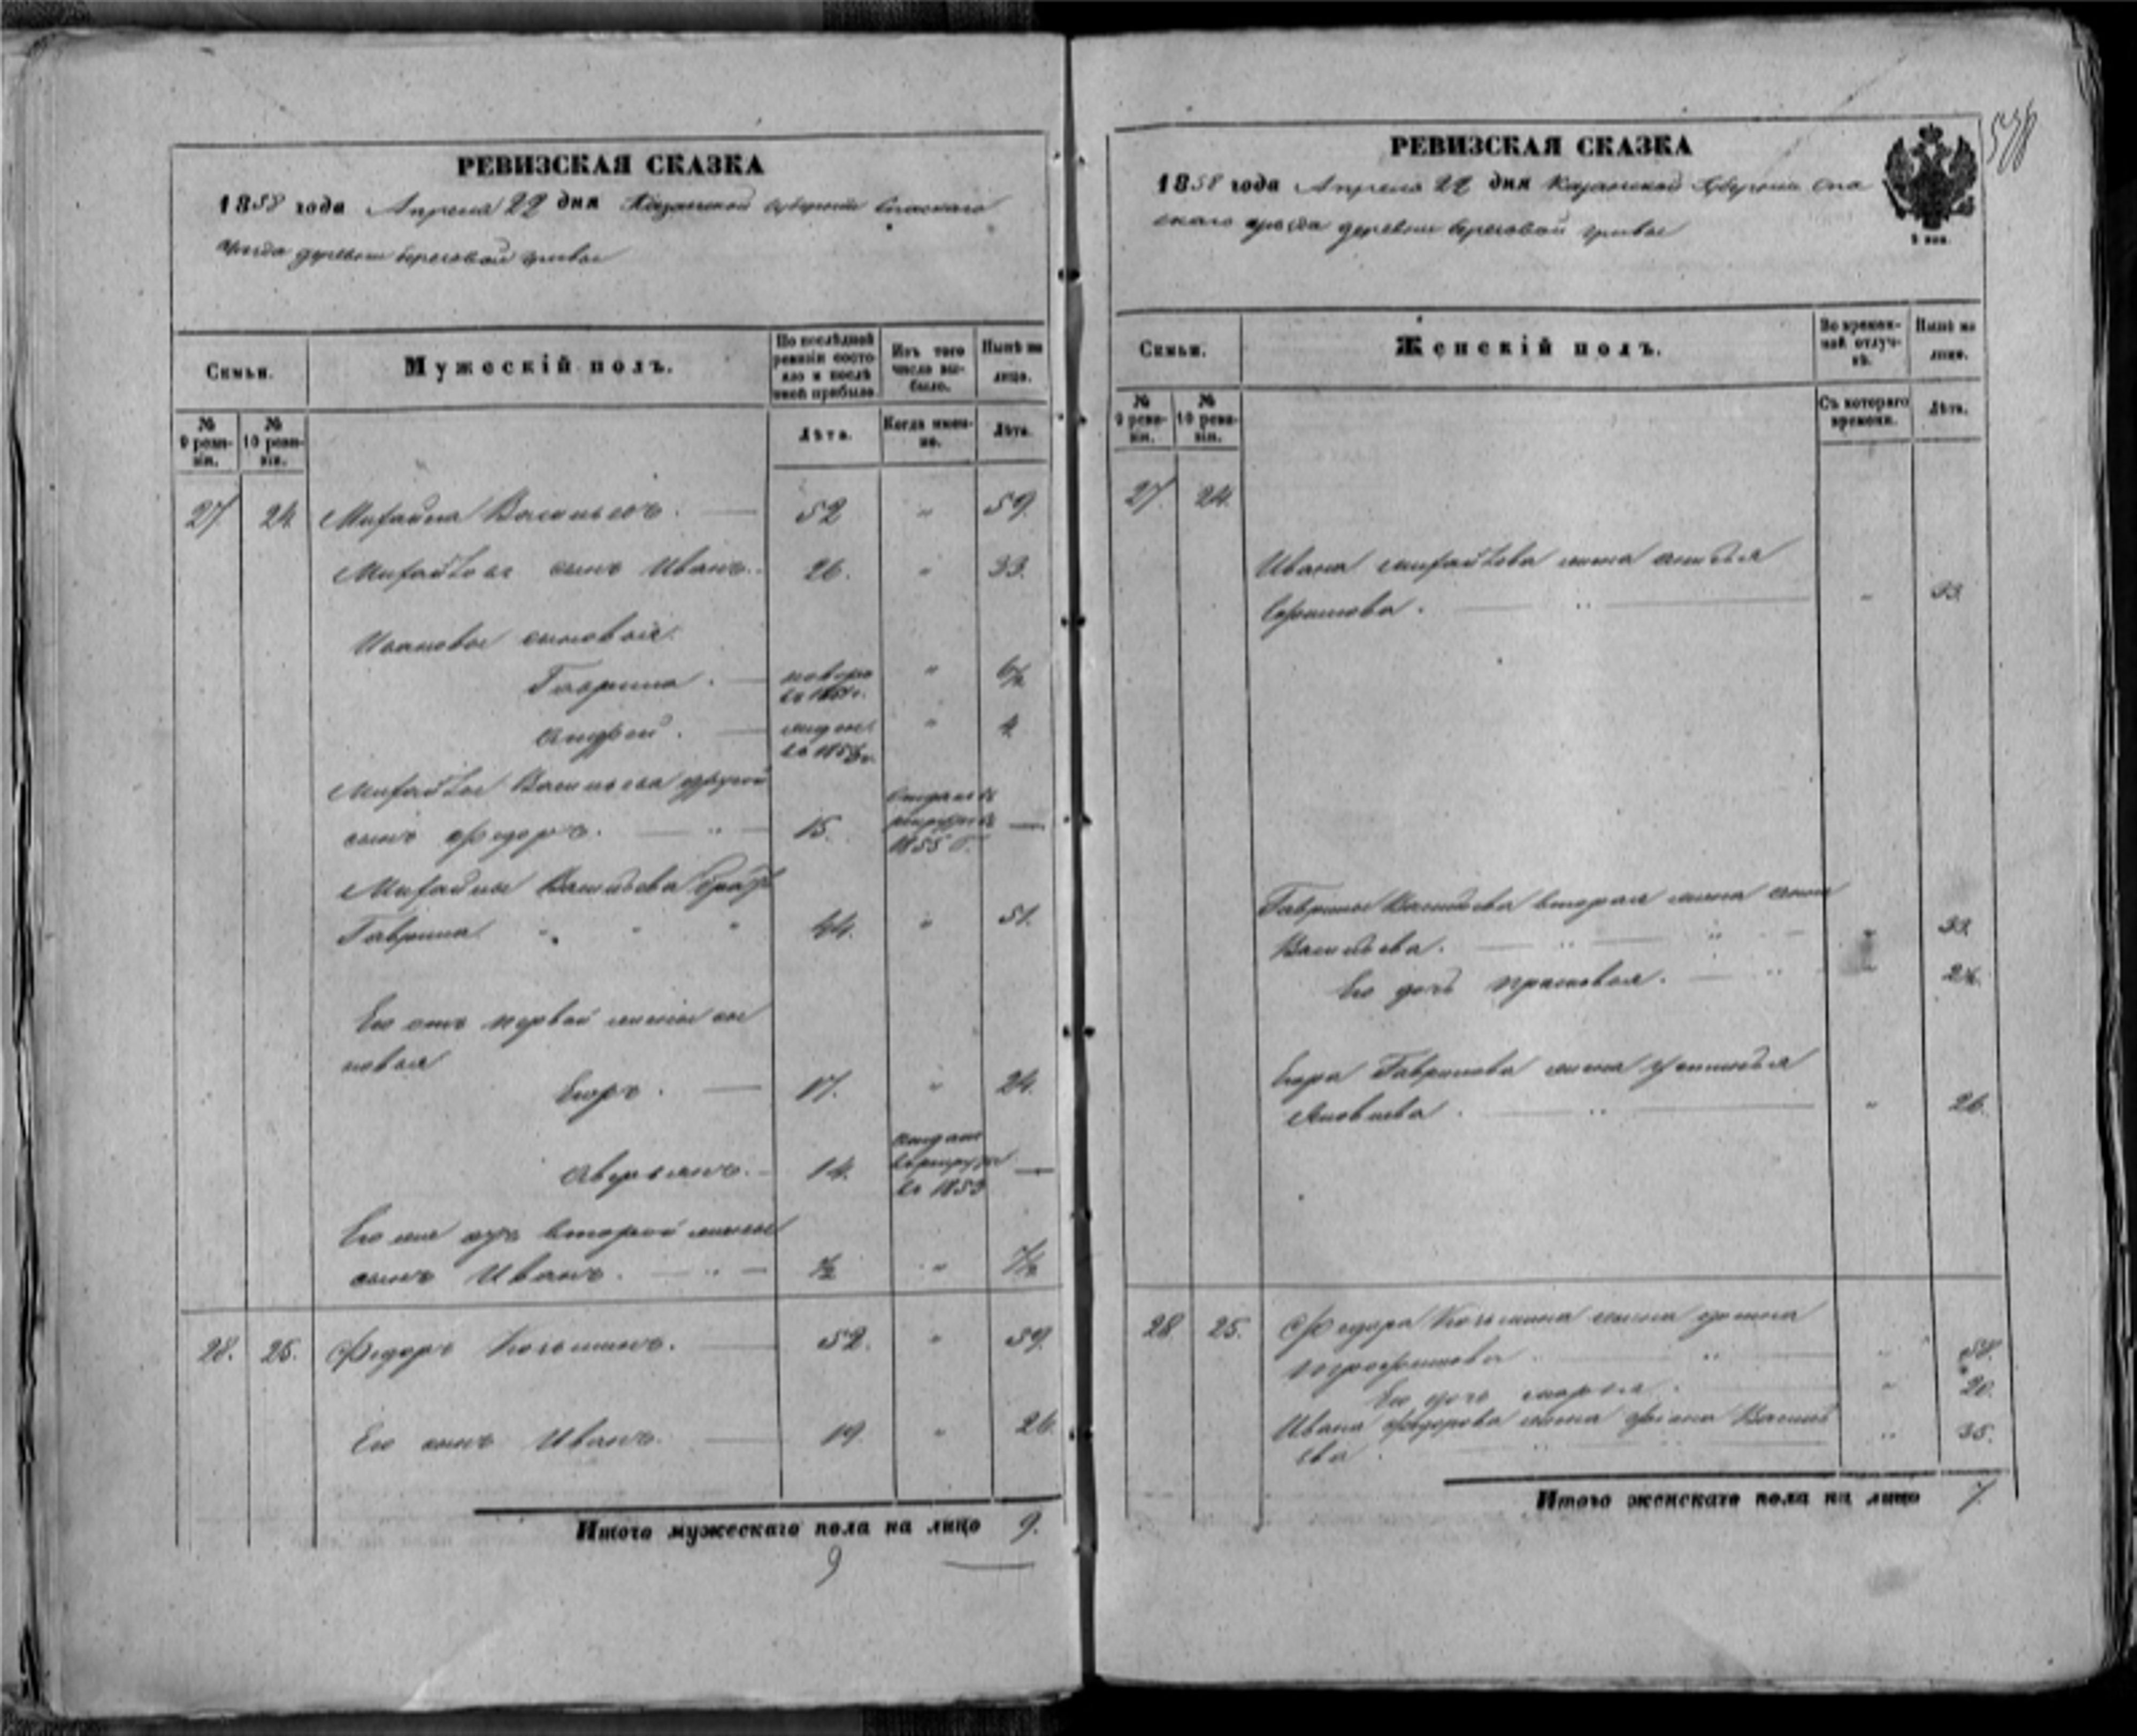 РЕВИЗСКАЯ СКАЗКА
1858 года Апреля 22 дня Казанской губернии Спаскаго
уезда деревни береговой гривы
Семьи.
Мужескій полъ.
По послѣдней ревизіи состояло и послѣ оной прибыло.
Изъ того числа выбыло.
Нынѣ на лицо.
№ 9 ревизіи.
№ 10 ревизіи.
Лѣта.
Когда именно.
Лѣта.
27. 24. Михайла Васильевъ. 52 " 59.
Михайлы сынъ Иванъ. 26. " 33.
Ивановы сыновья:
Гаврила. " 6½
въ 1851 г.
Андрей. " 4
Михайлы Васильева другой
сынъ Федоръ. 15. 1855 г. —
Михайлы Васильева братъ
Гаврила " 44. " 51.
Его отъ первой жены сы
новья
Егоръ. 17. " 24.
Аверьянъ. 14. въ 1853 —
Его же отъ второй жены
сынъ Иванъ. ½ " 7½
28. 25. Федоръ Козьминъ. 52. " 59.
Его сынъ Иванъ. 19. " 26.
Итого мужескаго пола на лицо 9.
9
РЕВИЗСКАЯ СКАЗКА
1858 года Апреля 22 дня Казанской Губернии Спа
скаго уезда деревни береговой гривы
Семьи.
Женскій полъ.
Во временной отлучкѣ.
Нынѣ на лицо.
№ 9 ревизіи.
№ 10 ревизіи.
Съ котораго времени.
Лѣта.
27. 24.
Ивана Михайлова жена
" 33.
Гаврилы Васильева вторая жена Анна
Васильева. " 33.
Его дочь Прасковья. " 24.
Егора Гаврилова жена Устинья
Яковлева. " 26.
28 25. Федора Козьмина жена
" 58.
Его дочь Марья. " 20.
Ивана Федорова жена Василь
ева. " 35.
Итого женскаго пола на лицо 7.